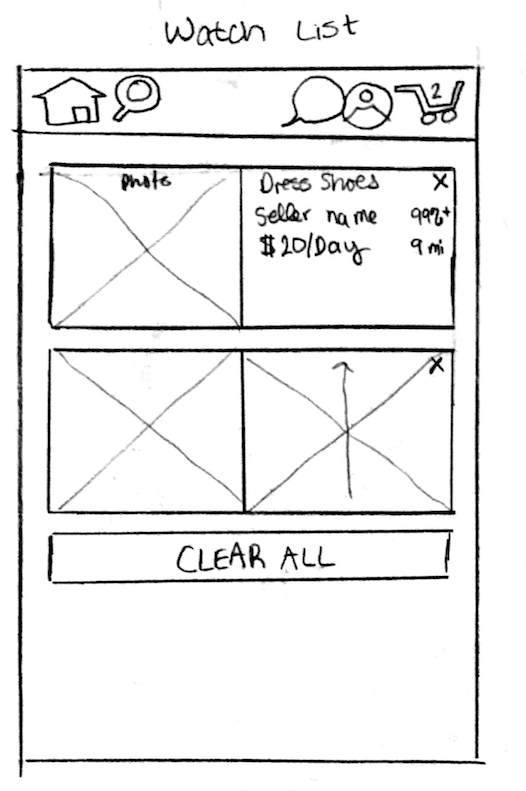 Watch List
2
photo
Dress Shoes X
Seller name 99%+
$20/Day 9 mi
X
CLEAR ALL